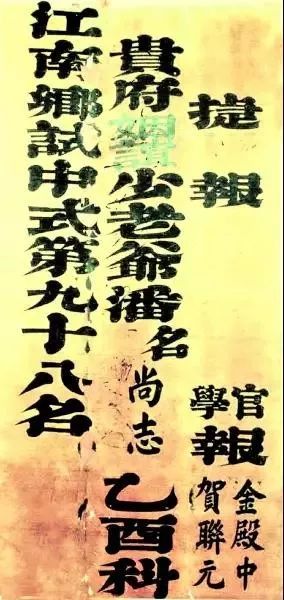 捷報
官學報
金殿中
賀聯元
貴府少老爺潘名尚志乙酉科
江南鄉試中式第九十八名